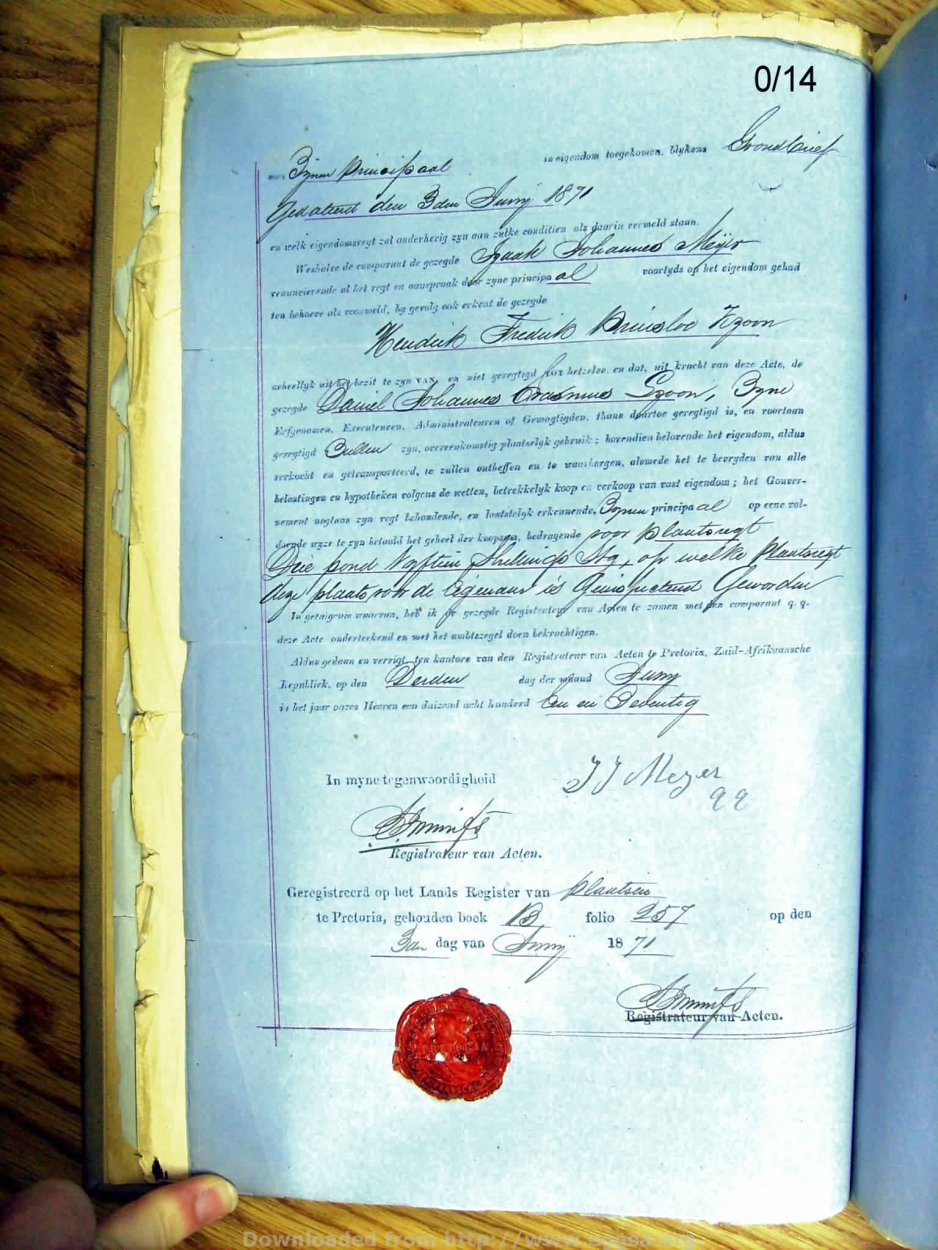 0/14
aan Zynen Principaal in eigendom toegekomen, blykens Grondbrief
Gedateerd den 3den Juny 1871
en welk eigendomsregt zal onderhevig zyn aan zulke conditien als daarin vermeld staan.
Weshalve de comparant de gezegde Izaak Johannes Meyer
renuncierende al het regt en aanspraak door zyne principaal voortyds op het eigendom gehad
ten behoeve als voormeld, by gevolg ook erkent de gezegde
Hendrik Fredrik Prinsloo Hzoon
geheellyk uit het bezit te zyn VAN, en niet geregtigd TOT hetzelve, en dat, uit kracht van deze Acte, de
gezegde Daniel Johannes Erasmus Szoon, Zyne
Erfgenamen, Executeuren, Administrateuren of Gemagtigden, thans daartoe geregtigd is, en voortaan
geregtigd Zullen zyn, overeenkomstig plaatselyk gebruik; bovendien belovende het eigendom, aldus
verkocht en getransporteerd, te zullen ontheffen en te waarborgen, alsmede het te bevryden van alle
belastingen en hypotheken volgens de wetten, betrekkelyk koop en verkoop van vast eigendom; het Gouver-
nement nogtans zyn regt behoudende, en laatstelyk erkennende, Zynen principaal op eene vol-
doende wyze te zyn betaald het geheel der koopsom, bedragende voor plaatsregt
Drie pond Vyftien Shillings Stg, op welke Plaatsregt
deze plaats voor de Eigenaar is Geinspecteerd Geworden
In getuigenis waarvan, heb ik de gezegde Registrateur van Acten te zamen met den comparant q. q.
deze Acte onderteekend en met het ambtszegel doen bekrachtigen.
Aldus gedaan en verrigt, ten kantore van den Registrateur van Acten te Pretoria, Zuid-Afrikaansche
Republiek, op den Derden dag der maand Juny
in het jaar onzes Heeren een duizend acht honderd Een en Zeventig
In myne tegenwoordigheid IJ Meyer
qq
Registrateur van Acten.
Geregistreerd op het Lands Register van plaatsen
te Pretoria, gehouden boek B, folio 257 op den
3den dag van Juny 1871
Registrateur van Acten.